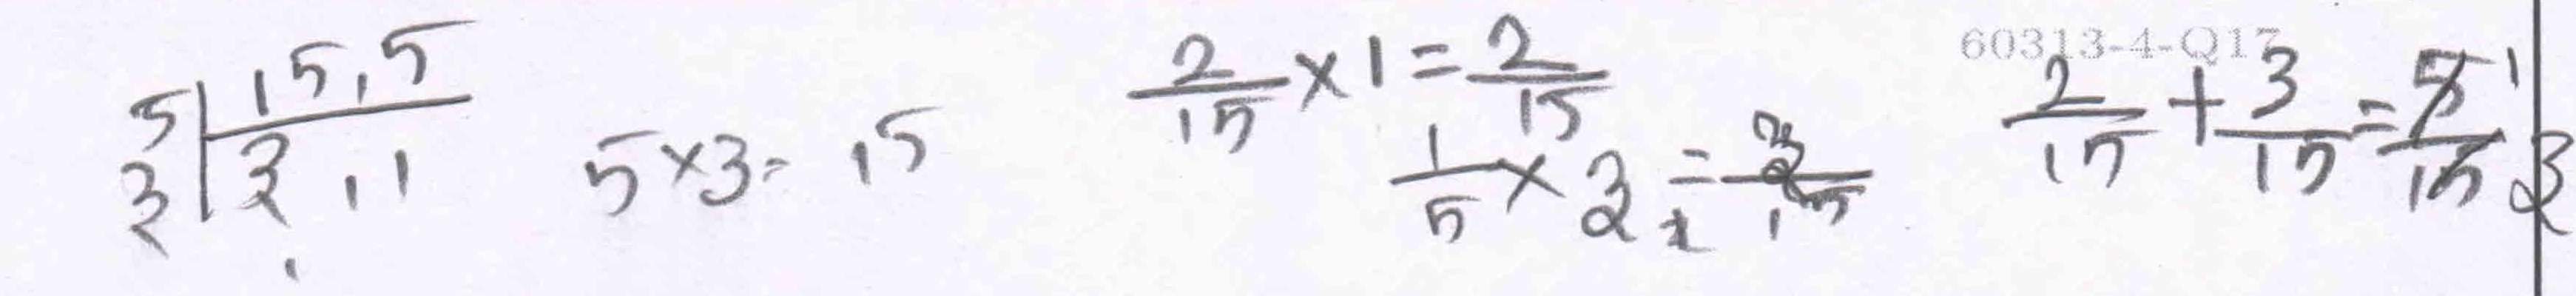 60313-4-Q17
5 | 15, 5
3 | 3, 1
1
5 × 3 = 15
2/15 × 1 = 2/15
1/5 × 3 = 3/15
2/15 + 3/15 = 5/15 1 3